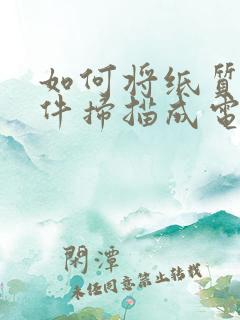 如何将纸质
件扫描成电
闲潭
未经同意禁止转载